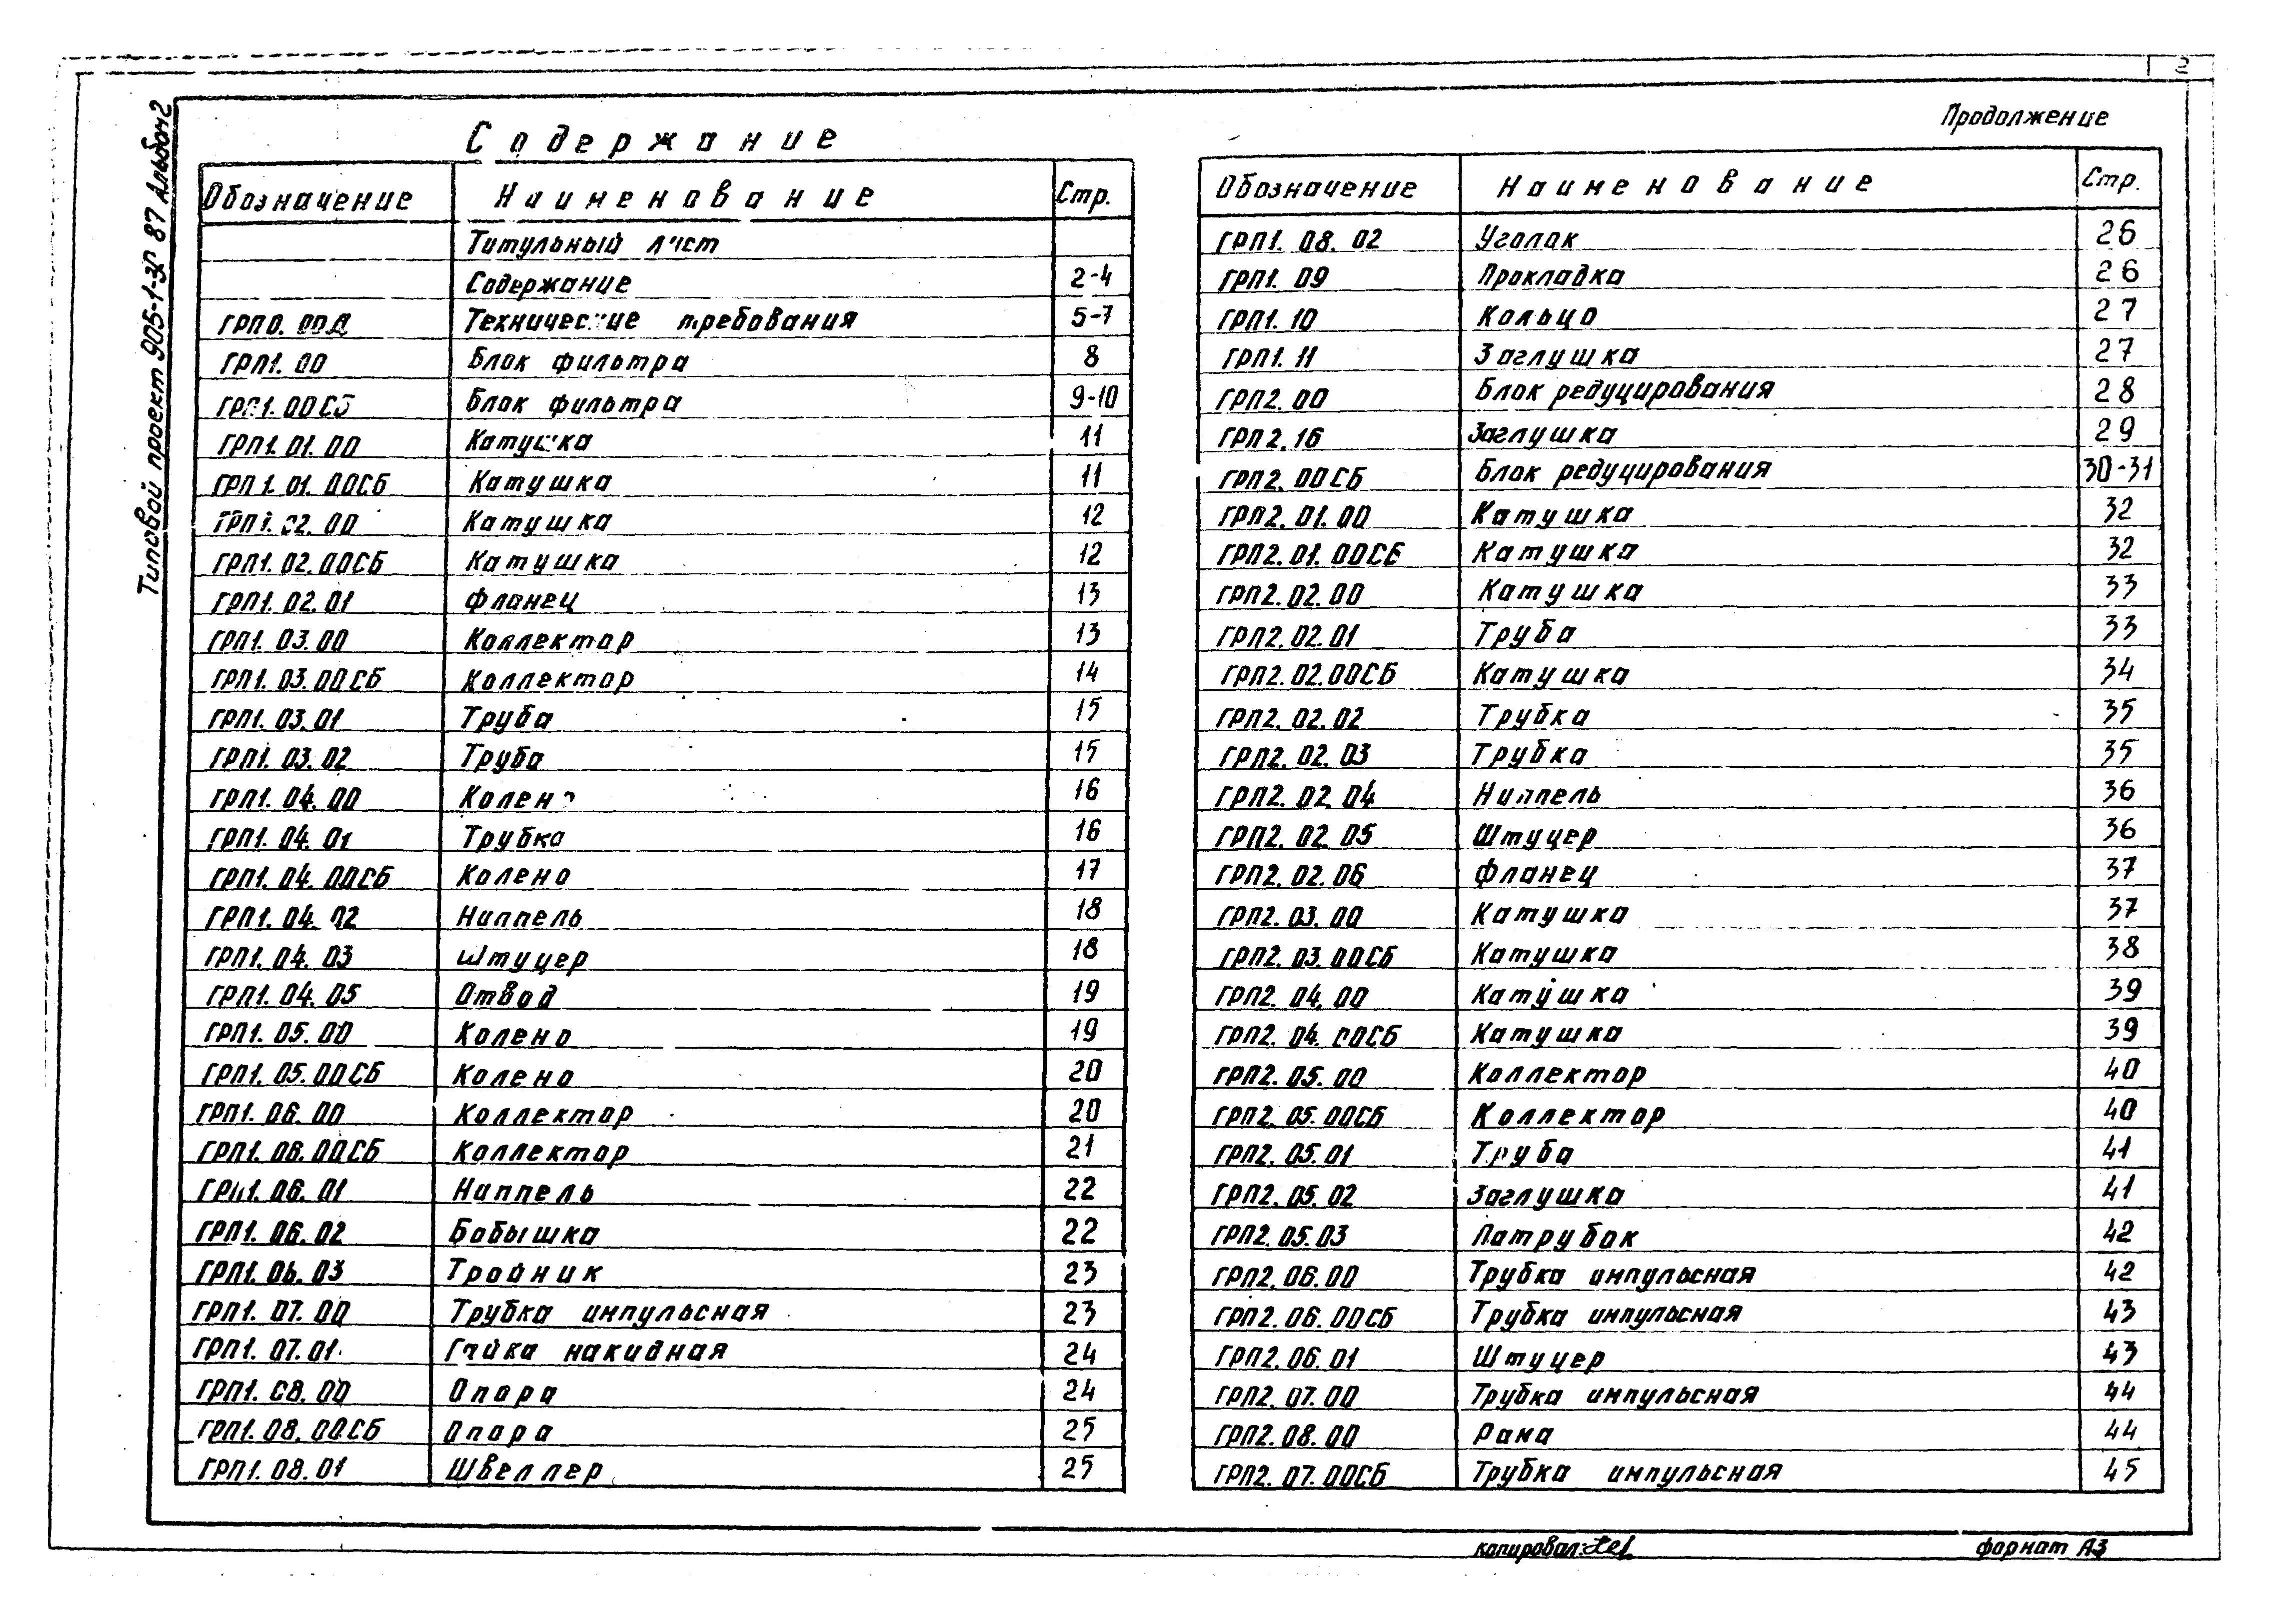 2
Типовой проект 905-1-38 87 Альбом 2
Содержание
Обозначение Наименование Стр.
Титульный лист
Содержание 2-4
ГРП0. 00Д Технические требования 5-7
ГРП1. 00 Блок фильтра 8
ГРП1. 00СБ Блок фильтра 9-10
ГРП1. 01. 00 Катушка 11
ГРП1. 01. 00СБ Катушка 11
ГРП1. 02. 00 Катушка 12
ГРП1. 02. 00СБ Катушка 12
ГРП1. 02. 01 Фланец 13
ГРП1. 03. 00 Коллектор 13
ГРП1. 03. 00СБ Коллектор 14
ГРП1. 03. 01 Труба 15
ГРП1. 03. 02 Труба 15
ГРП1. 04. 00 Колено 16
ГРП1. 04. 01 Трубка 16
ГРП1. 04. 00СБ Колено 17
ГРП1. 04. 02 Ниппель 18
ГРП1. 04. 03 Штуцер 18
ГРП1. 04. 05 Отвод 19
ГРП1. 05. 00 Колено 19
ГРП1. 05. 00СБ Колено 20
ГРП1. 06. 00 Коллектор 20
ГРП1. 06. 00СБ Коллектор 21
ГРП1. 06. 01 Ниппель 22
ГРП1. 06. 02 Бобышка 22
ГРП1. 06. 03 Тройник 23
ГРП1. 07. 00 Трубка импульсная 23
ГРП1. 07. 01 Гайка накидная 24
ГРП1. 08. 00 Опора 24
ГРП1. 08. 00СБ Опора 25
ГРП1. 08. 01 Швеллер 25
Продолжение
Обозначение Наименование Стр.
ГРП1. 08. 02 Уголок 26
ГРП1. 09 Прокладка 26
ГРП1. 10 Кольцо 27
ГРП1. 11 Заглушка 27
ГРП2. 00 Блок редуцирования 28
ГРП2. 16 Заглушка 29
ГРП2. 00СБ Блок редуцирования 30-31
ГРП2. 01. 00 Катушка 32
ГРП2. 01. 00СБ Катушка 32
ГРП2. 02. 00 Катушка 33
ГРП2. 02. 01 Труба 33
ГРП2. 02. 00СБ Катушка 34
ГРП2. 02. 02 Трубка 35
ГРП2. 02. 03 Трубка 35
ГРП2. 02. 04 Ниппель 36
ГРП2. 02. 05 Штуцер 36
ГРП2. 02. 06 Фланец 37
ГРП2. 03. 00 Катушка 37
ГРП2. 03. 00СБ Катушка 38
ГРП2. 04. 00 Катушка 39
ГРП2. 04. 00СБ Катушка 39
ГРП2. 05. 00 Коллектор 40
ГРП2. 05. 00СБ Коллектор 40
ГРП2. 05. 01 Труба 41
ГРП2. 05. 02 Заглушка 41
ГРП2. 05. 03 Патрубок 42
ГРП2. 06. 00 Трубка импульсная 42
ГРП2. 06. 00СБ Трубка импульсная 43
ГРП2. 06. 01 Штуцер 43
ГРП2. 07. 00 Трубка импульсная 44
ГРП2. 08. 00 Рама 44
ГРП2. 07. 00СБ Трубка импульсная 45
копировал:
формат А3